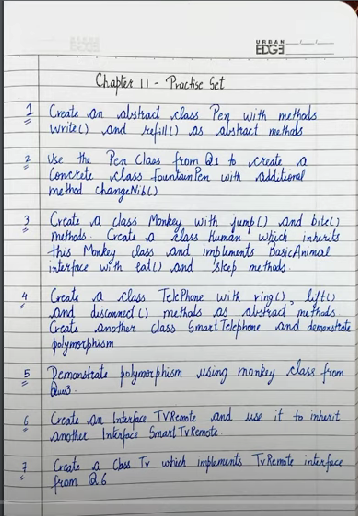 URBAN
EDGE
Chapter 11 - Practise Set
1 Create an abstract class Pen with methods
write() and refill() as abstract methods
2 Use the Pen Class from Q1 to create a
Concrete class fountainPen with additional
method changeNib()
3 Create a class Monkey with jump() and bite()
methods. Create a class Human which inherits
this Monkey class and implements BasicAnimal
interface with eat() and sleep methods.
4 Create a class TelePhone with ring(), lift()
and disconnect() methods as abstract methods
Create another class Smart Telephone and demonstrate
polymorphism
5 Demonstrate polymorphism using monkey class from
Que3.
6 Create an Interface TVRemote and use it to inherit
another Interface Smart TvRemote
7 Create a Class Tv which implements TvRemote interface
from Q6